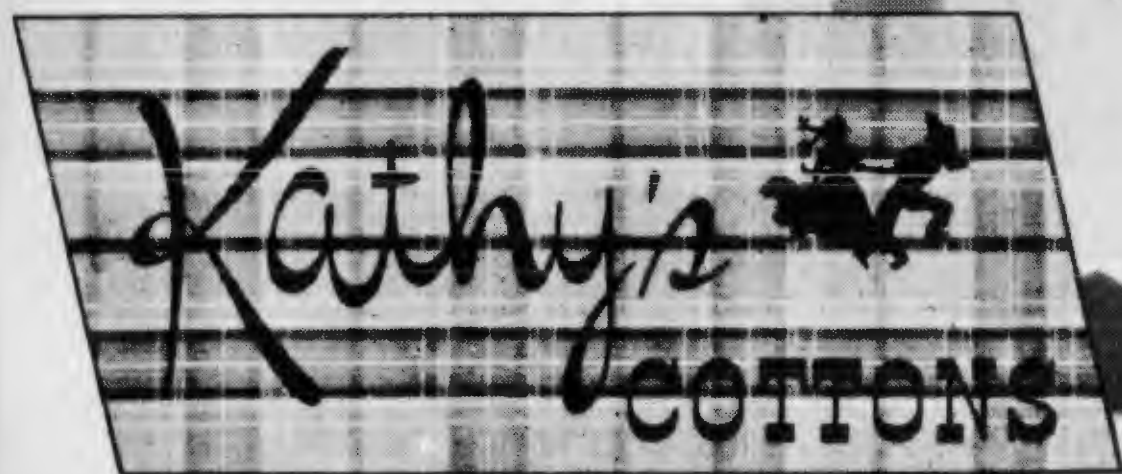 Kathy's
COTTONS